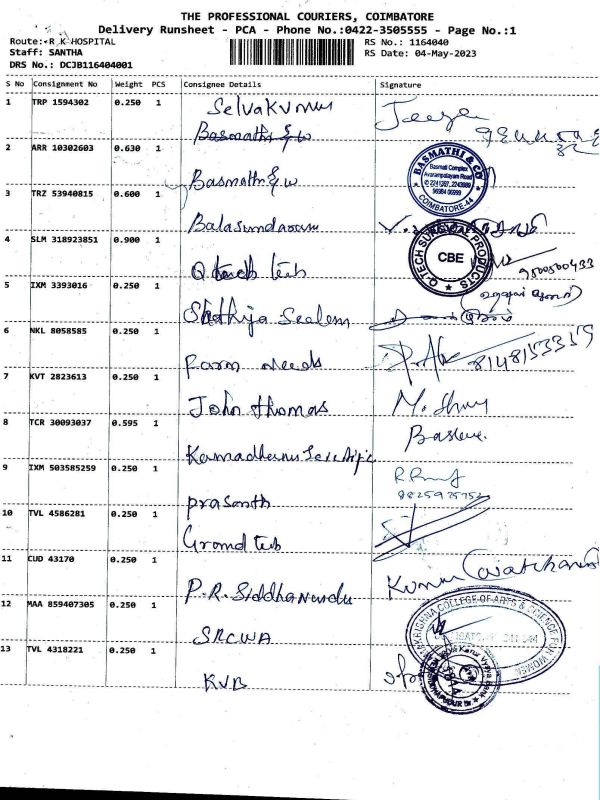 THE PROFESSIONAL COURIERS, COIMBATORE
Delivery Runsheet - PCA - Phone No.:0422-3505555 - Page No.:1
Route:- R K HOSPITAL RS No.: 1164040
Staff: SANTHA RS Date: 04-May-2023
DRS No.: DCJB116404001
S No Consignment No Weight PCS Consignee Details Signature
1 TRP 1594302 0.250 1 Selvakumar
Basmathi & w
2 ARR 10302603 0.630 1 Basmathi & w
BASMATHI & CO
Basmati Complex
Avarampalayam Road
COIMBATORE-44
3 TRZ 53940815 0.600 1 Balasundaram
4 SLM 318923851 0.900 1 Q tech
Q-TECH SURGICAL PRODUCTS
CBE
9500500433
5 IXM 3393016 0.250 1 Shathija Sealem
6 NKL 8058585 0.250 1 Farm needs
8148153359
7 KVT 2823613 0.250 1 John thomas
8 TCR 30093037 0.595 1 Kamadhenu
9 IXM 503585259 0.250 1 prasanth
10 TVL 4586281 0.250 1 Grond
11 CUD 43170 0.250 1 P.R. Siddhanundu
12 MAA 859407305 0.250 1 SRCWA
COLLEGE OF ARTS & SCIENCE FOR WOMEN
13 TVL 4318221 0.250 1 KVB